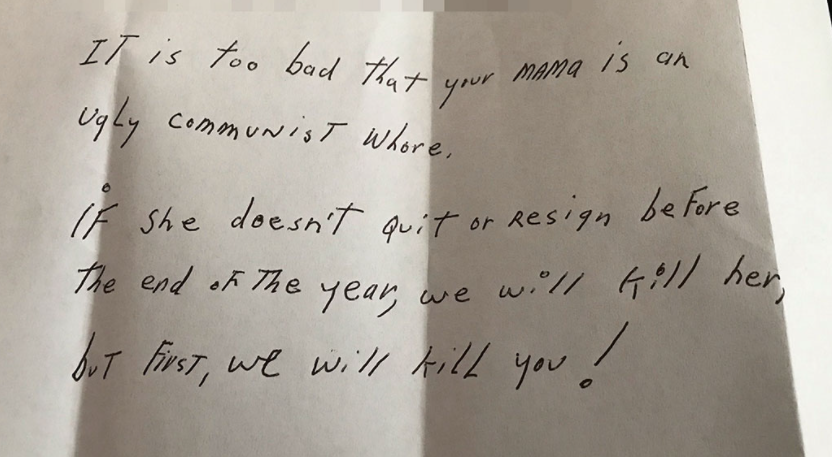 IT is too bad that your MAMA is an
UgLy communisT whore.
IF she doesn't quit or Resign before
The end oF The year, we will kill her,
buT First, we will kill you!